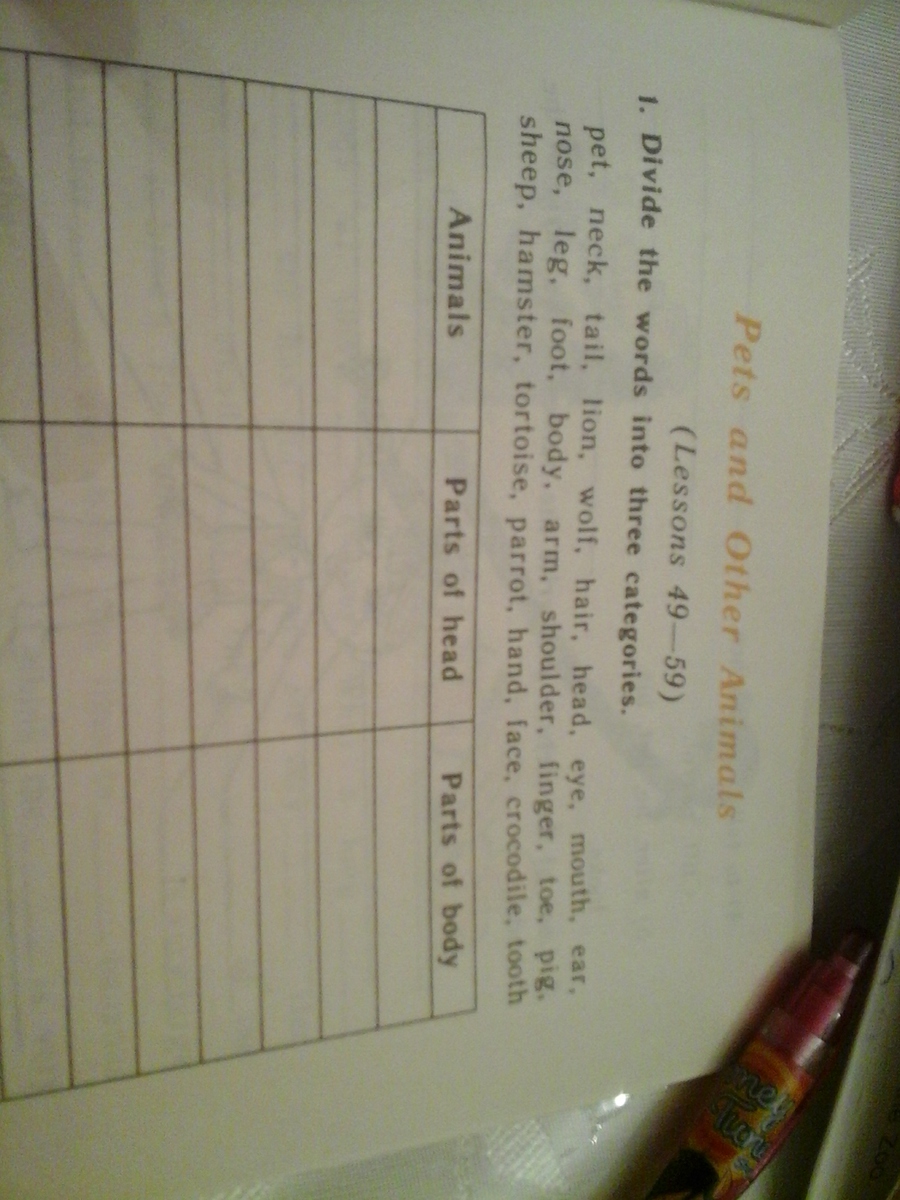 Pets and Other Animals
(Lessons 49—59)
1. Divide the words into three categories.
pet, neck, tail, lion, wolf, hair, head, eye, mouth, ear,
nose, leg, foot, body, arm, shoulder, finger, toe, pig,
sheep, hamster, tortoise, parrot, hand, face, crocodile, tooth
Animals
Parts of head
Parts of body